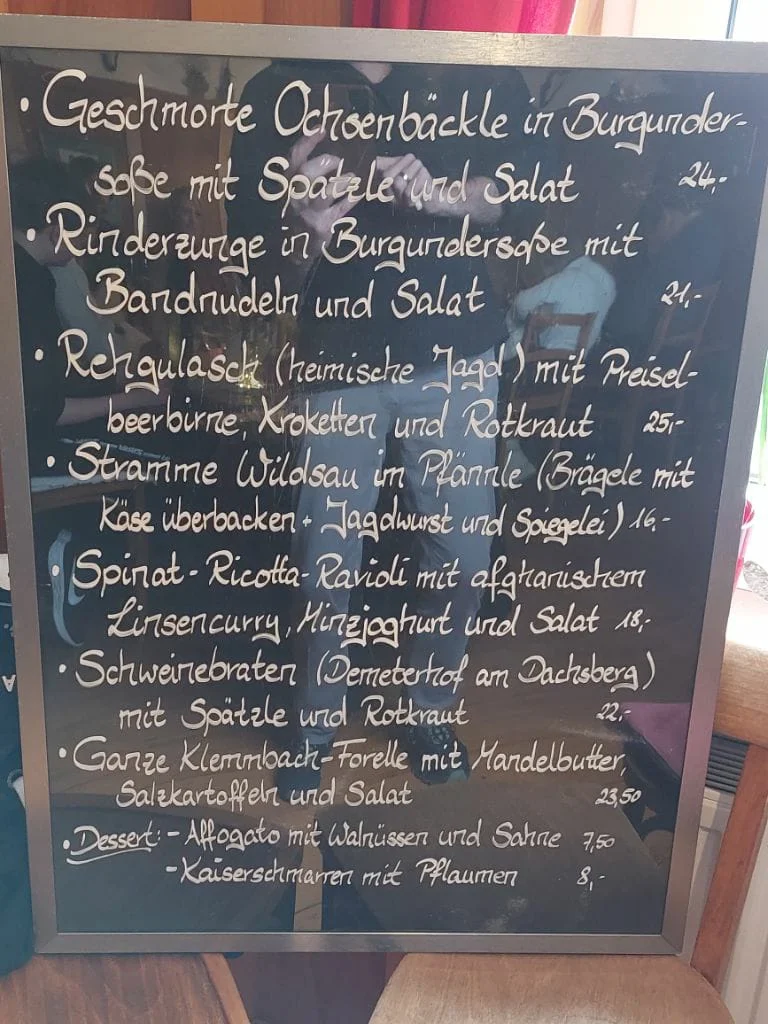 • Geschmorte Ochsenbäckle in Burgunder-
soße mit Spätzle und Salat 24,-
• Rinderzunge in Burgundersoße mit
Bandnudeln und Salat 21,-
• Rehgulasch (heimische Jagd) mit Preisel-
beerbirne, Kroketten und Rotkraut 25,-
• Stramme Wildsau im Pfännle (Brägele mit
Käse überbacken + Jagdwurst und Spiegelei) 16,-
• Spinat-Ricotta-Ravioli mit afghanischem
Linsencurry, Minzjoghurt und Salat 18,-
• Schweinebraten (Demeterhof am Dachsberg)
mit Spätzle und Rotkraut 22,-
• Ganze Klemmbach-Forelle mit Mandelbutter,
Salzkartoffeln und Salat 23,50
• Dessert: - Affogato mit Walnüssen und Sahne 7,50
- Kaiserschmarren mit Pflaumen 8,-